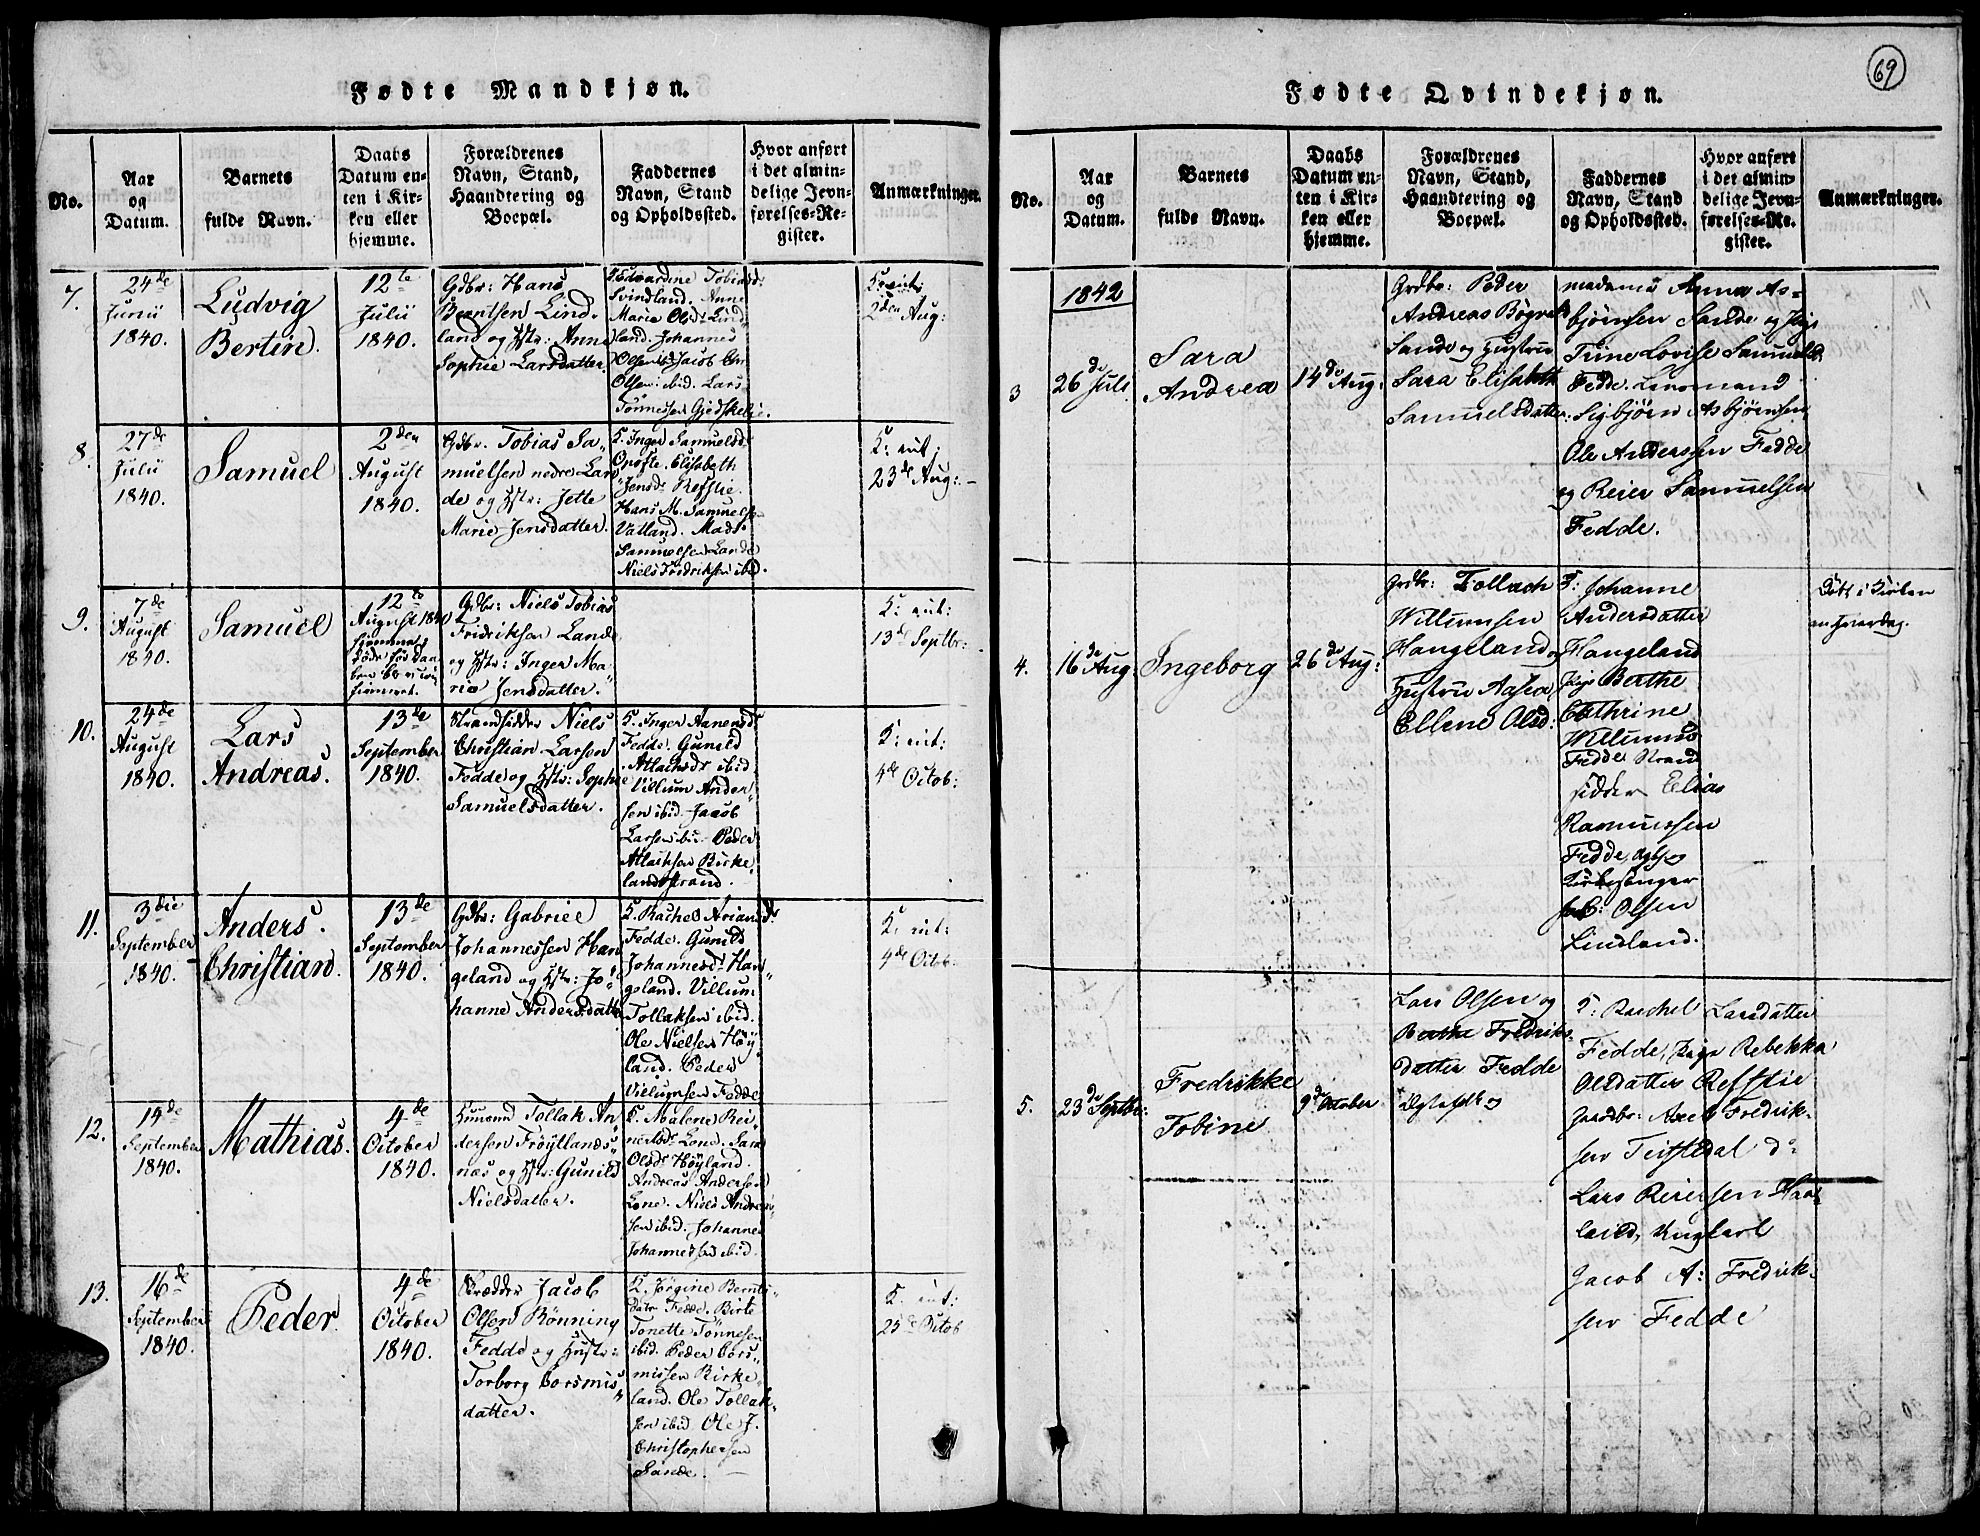 Fødte Mandkjøn.
No.
Aar
og
Datum.
Barnets
fulde Navn.
Daabs
Datum en-
ten i Kir-
ken eller
hjemme.
Forældrenes
Navn, Stand,
Haandtering og
Boepæl.
Faddernes
Navn, Stand
og Opholdssted.
Hvor anført
i det almin-
delige Jevn-
førelses-Re-
gister.
Anmærkninger.
7.
24de
Junii
1840.
Ludvig
Bertin.
12te
Julii
1840.
Gdbr: Hans
Berntsen Lind-
land og Hstr: Anne
Sophie Larsdatter.
Edvardine Tobiasd:
Svindland. Anne
Marie Olsdr Lind-
land. Johannes
Olsen ibid. Jacob
Olsen ibid. Lars
Tønnessen Gjedskelie.
2den Aug:
8.
27de
Julii
1840.
Samuel
2den
August
1840.
Gdbr. Tobias Sa-
muelsen nedre Lan-
de og Hstr: Jette
Marie Jensdatter.
K. Inger Samuelsd:
Opofte. Elisabeth
Jensdr Refslie.
Hans M. Samuelsen
Vatland. Mads
Samuelsen Lande
Niels Fredriksen ibid.
K: int:
23de Aug:
9.
7de
August
1840.
Samuel
12te
August 1840
hjemmet
Gdbr: Niels Tobias
Fridriksen Lande
og Hstr: Inger Ma-
rie Jensdatter.
K: int:
13de Septbr:
10.
24de
August
1840.
Lars
Andreas.
13de
September
1840.
Strandsidder Niels
Christian Larsen
Fedde og Hstr: Sophie
Samuelsdatter.
K. Inger Aanensdr
Fedde. Gunild
Atlaksdr ibid.
Villum Ander-
sen ibid. Jacob
Larsen ibid. Peder
Atlaksen Birke-
landstrand.
K: int:
4de Octob:
11.
3die
September
1840.
Anders
Christian.
13de
September
1840.
Gdbr: Gabriel
Johannessen Han-
geland og Hstr: Jo-
hanne Andersdatter
K. Rachel Ariansdr
Fedde. Gunild
Johannesdr Han-
geland. Villum
Tollaksen ibid.
Ole Nielsen Høy-
land. Peder
Villumsen Fedde
K. int:
4de Octob:
12.
14de
September
1840.
Mathias.
4de
October
1840.
Huusmd Tollak An-
dersen Frøytlands-
næs og Hstr: Gunild
Nielsdatter.
K. Malene Rei-
nertsdr Lone. Sara
Olsdr Høyland.
Andreas Andersen
Lone. Niels Andrea-
sen ibid. Johannes
Johannessen ibid.
13.
16de
September
1840.
Peder.
4de
October
1840.
Skrædder Jacob
Olsen Rønning
Fedde og Hustr:
Torborg Gorsmis-
datter.
K. Jørgine Bernts-
datr Fedde. Birte
Tonette Tønnesen
ibid. Peder Gors-
missen Birke-
land. Ole Tollak-
sen ibid. Ole J.
Christophersen
Sande.
K. int:
25de Octob
69
Fødte Qvindekjøn.
No.
Aar
og
Datum.
Barnets
fulde Navn.
Daabs
Datum en-
ten i Kir-
ken eller
hjemme.
Forældrenes
Navn, Stand,
Haandtering og
Boepæl.
Faddernes
Navn, Stand
og Opholdssted.
Hvor anført
i det almin-
delige Jevn-
førelses-Re-
gister.
Anmærkninger.
1842
3
26de Juli
Sara
Andrea
14de Aug:
Grdbr: Peder
Andreas Bøgvald
Sande og Hustrue
Sara Elisabeth
Samuelsdatter
madame Anna As-
bjørnsen Sande og Pige
Trine Lovise Samuelsd
Fedde. Lensmand
Sigbjørn Asbjørnsen
Ole Anderssen Fedde
og Reier Samuelsen
Fedde.
4.
16de Aug
Ingeborg
26de Aug:
Grdbr: Tollach
Willumsen
Hangeland og
Hustru Aasea
Ellene Olsd.
K: Johanne
Andersdatter
Hangeland
Pige Berthe
Cathrine
Willumsd
Fedde Strand
sidder Elias
Rasmussen
Fedde og
Kirkesanger
Olsen
Lindland.
Døbt i Kirken
en Fredag.
5.
23de Septbr:
Fredrikke
Tobine
9de October
Lars Olsen og
Berthe Fredriks-
datter Fedde
K: Rachel Larsdatter
Fedde, Pige Rebekka
Olsdatter Refslie
Gaardbr: Axel Fredrik-
sen Teistedal do
Lars Reiersen Haa-
land, Ungkarl
Jacob A: Fredrik-
sen Fedde